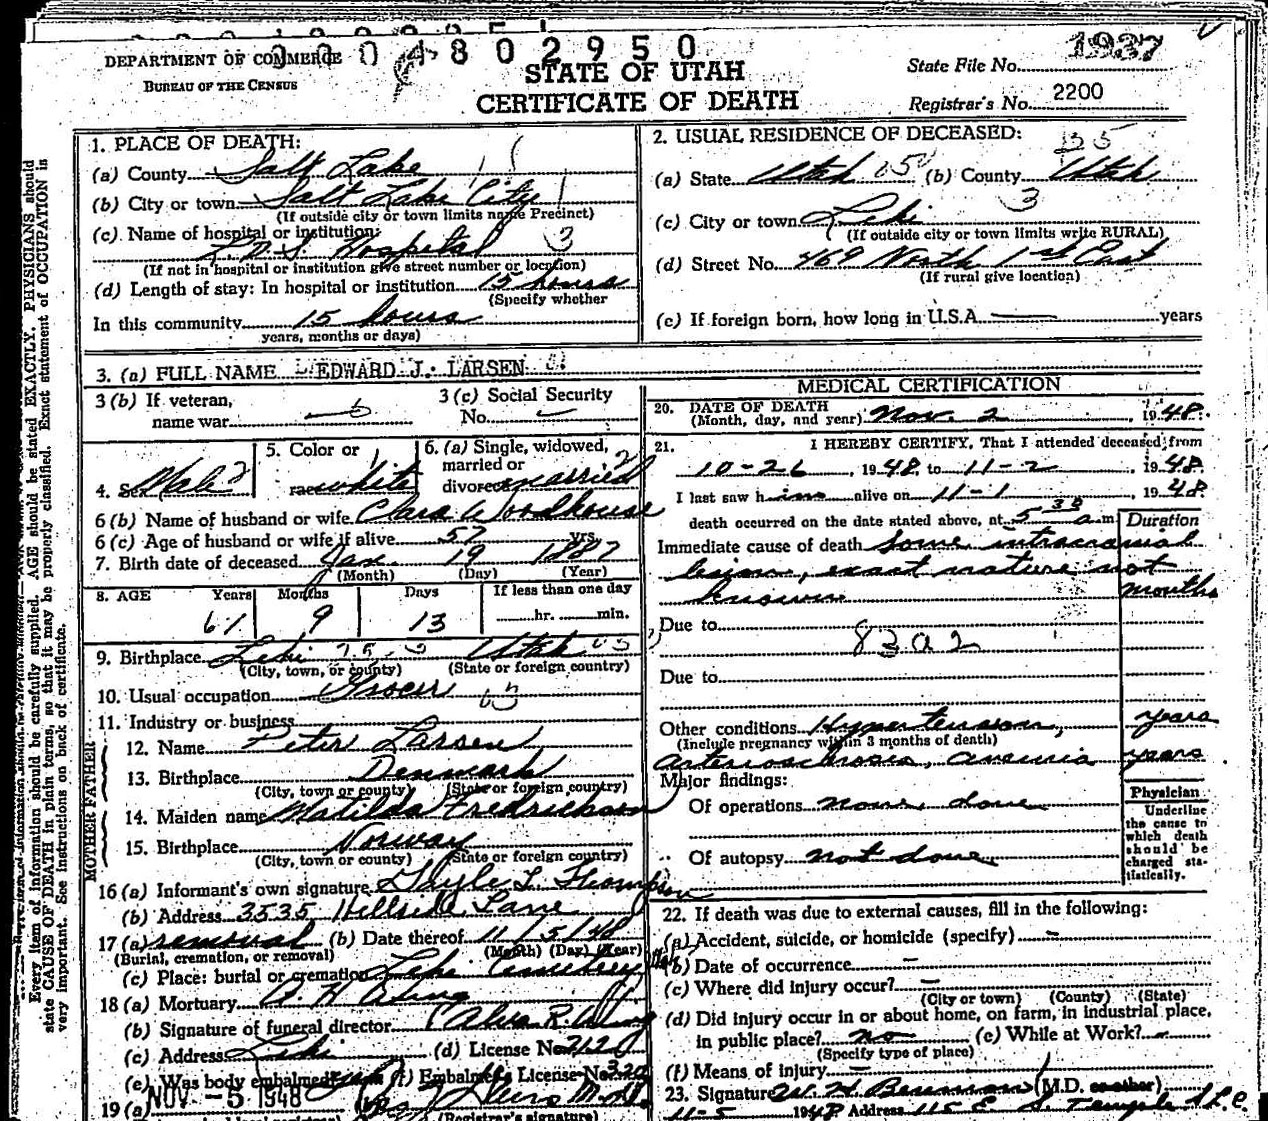 004802950
DEPARTMENT OF COMMERCE
BUREAU OF THE CENSUS
STATE OF UTAH
CERTIFICATE OF DEATH
State File No. 1937
Registrar's No. 2200
1. PLACE OF DEATH:
(a) County Salt Lake
(b) City or town Salt Lake City
(If outside city or town limits name Precinct)
(c) Name of hospital or institution:
L.D.S. Hospital 3
(If not in hospital or institution give street number or location)
(d) Length of stay: In hospital or institution 15 hours
(Specify whether
In this community 15 hours
years, months or days)
2. USUAL RESIDENCE OF DECEASED:
(a) State Utah (b) County Utah
3
(c) City or town Lehi
(If outside city or town limits write RURAL)
(d) Street No. 469 North 1st East
(If rural give location)
(e) If foreign born, how long in U.S.A. years
3. (a) FULL NAME EDWARD J. LARSEN
3 (b) If veteran,
name war
3 (c) Social Security
No.
4. Sex Male
5. Color or
race white
6. (a) Single, widowed,
married or
divorced married
6 (b) Name of husband or wife Clara Woodhouse
6 (c) Age of husband or wife if alive 57 yrs.
7. Birth date of deceased Jan. 19 1887
(Month) (Day) (Year)
8. AGE Years Months Days If less than one day
61 9 13 hr. min.
9. Birthplace Lehi Utah
(City, town, or county) (State or foreign country)
10. Usual occupation Grocer
11. Industry or business
FATHER
12. Name Peter Larsen
13. Birthplace Denmark
(City, town or county) (State or foreign country)
MOTHER
14. Maiden name Matilda Fredrickson
15. Birthplace Norway
(City, town or county) (State or foreign country)
16 (a) Informant's own signature Gayle L. Thompson
(b) Address 3535 Hillside Lane
17 (a) removal (b) Date thereof 11/5/48
(Burial, cremation, or removal) (Month) (Day) (Year)
(c) Place: burial or cremation Lehi Cemetery
18 (a) Mortuary
(b) Signature of funeral director
(c) Address Lehi (d) License No. 2120
(e) Was body embalmed (f) Embalmer's License No. 320
19 (a) NOV -5 1948
(Registrar's signature)
MEDICAL CERTIFICATION
20. DATE OF DEATH
(Month, day, and year) Nov. 2, 1948.
21. I HEREBY CERTIFY, That I attended deceased from
10-26, 1948 to 11-2, 1948
I last saw him alive on 11-1, 1948
death occurred on the date stated above, at 5 30 a.m. Duration
Immediate cause of death Some intracranial
lesion, exact nature not
known months
Due to
83a2
Due to
Other conditions Hypertension, years
(Include pregnancy within 3 months of death)
arteriosclerosis, anemia years
Major findings:
Of operations none done
Of autopsy not done
Physician
Underline
the cause to
which death
should be
charged sta-
tistically.
22. If death was due to external causes, fill in the following:
(a) Accident, suicide, or homicide (specify)
(b) Date of occurrence
(c) Where did injury occur?
(City or town) (County) (State)
(d) Did injury occur in or about home, on farm, in industrial place,
in public place? no (e) While at Work?
(Specify type of place)
(f) Means of injury
23. Signature (M.D. or other)
11-5 1948 Address 115 E S. Temple S L C.
Every item of information should be carefully supplied. AGE should be stated EXACTLY. PHYSICIANS should
state CAUSE OF DEATH in plain terms, so that it may be properly classified. Exact statement of OCCUPATION is
very important. See instructions on back of certificate.